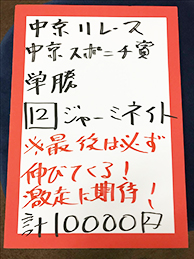 中京11レース
中京スポニチ賞
単勝
12 ジャーミネイト
※最後は必ず
伸びてくる!
激走に期待!
計10000円